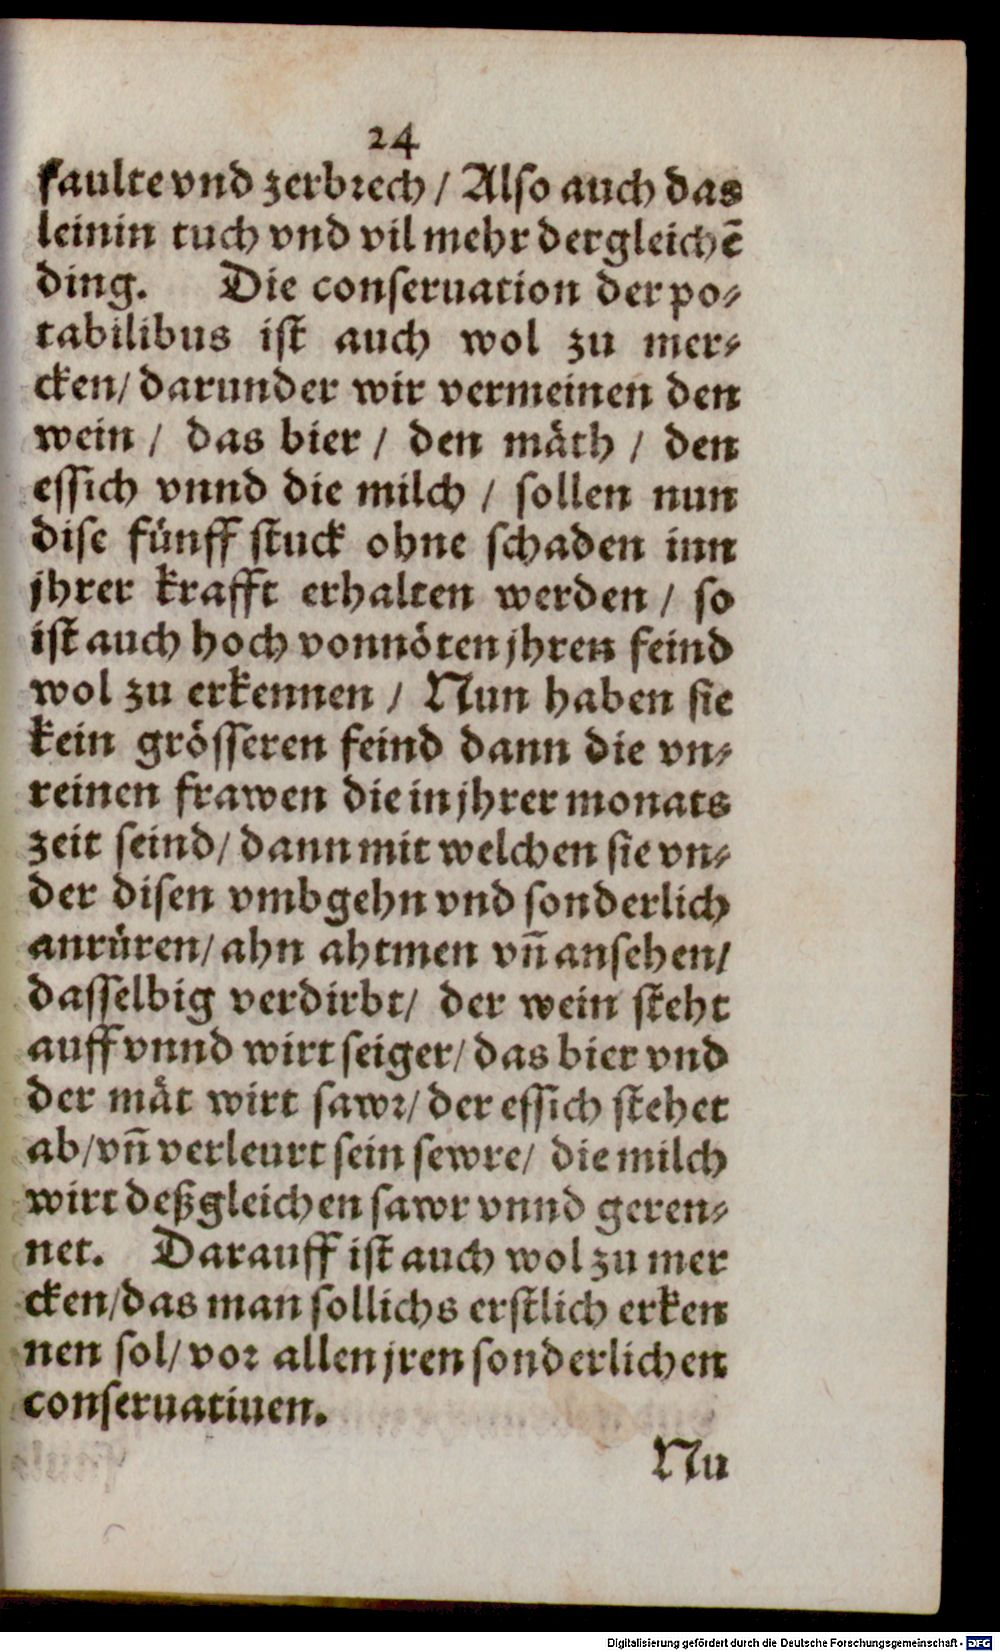 24
faulte vnd zerbrech / Also auch das
leinin tuch vnd vil mehr dergleichē
ding. Die conseruation der po⸗
tabilibus ist auch wol zu mer⸗
cken / darunder wir vermeinen den
wein / das bier / den mäth / den
essich vnnd die milch / sollen nun
dise fünff stuck ohne schaden inn
jhrer krafft erhalten werden / so
ist auch hoch vonnöten jhren feind
wol zu erkennen / Nun haben sie
kein grösseren feind dann die vn⸗
reinen frawen die in jhrer monats
zeit seind / dann mit welchen sie vn⸗
der disen vmbgehn vnd sonderlich
anrüren / ahn ahtmen vn̄ ansehen /
dasselbig verdirbt / der wein steht
auff vnnd wirt seiger / das bier vnd
der mät wirt sawr / der essich stehet
ab / vn̄ verleurt sein sewre / die milch
wirt deßgleichen sawr vnnd geren⸗
net. Darauff ist auch wol zu mer
cken / das man sollichs erstlich erken
nen sol / vor allen jren sonderlichen
conseruatiuen.
Nu
Digitalisierung gefördert durch die Deutsche Forschungsgemeinschaft - DFG